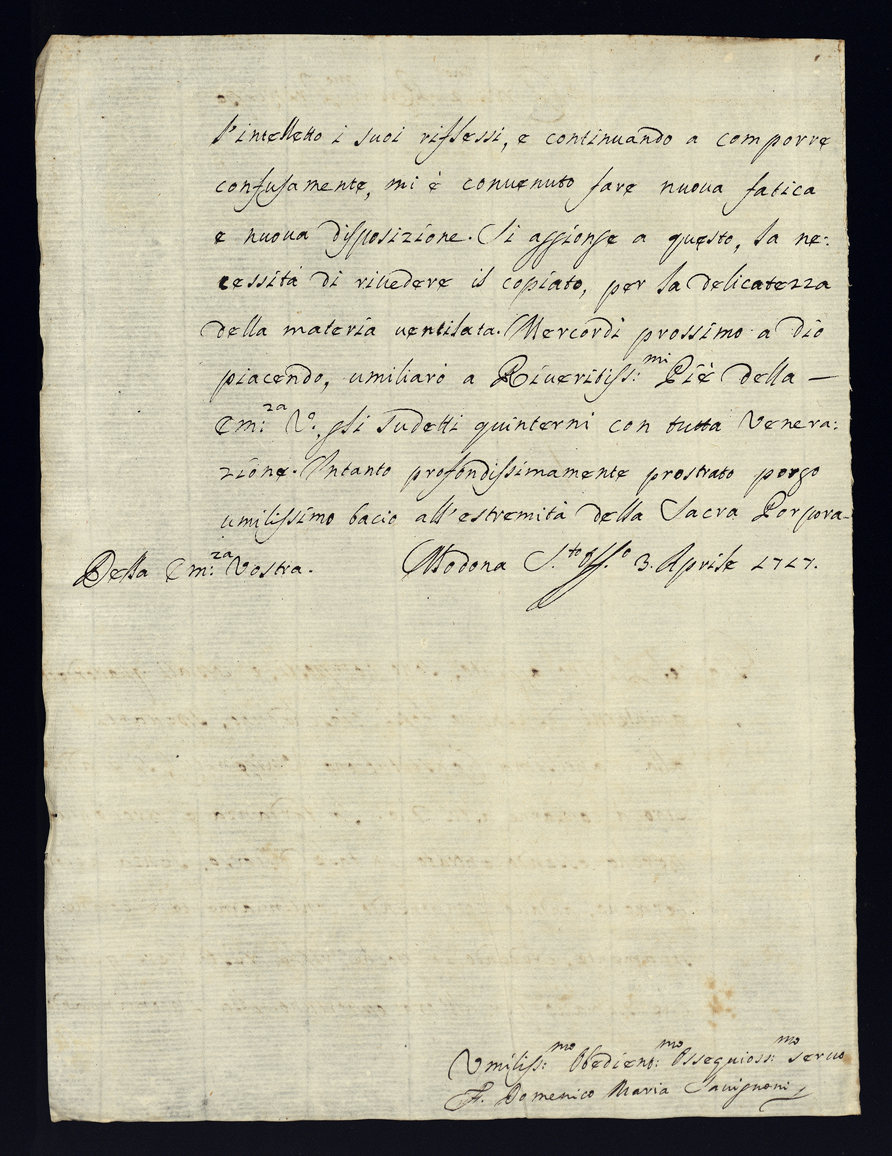 l'intelletto i suoi riflessi, e continuando a comporre
confusamente, mi è convenuto fare nuova fatica
e nuova disposizione. Si aggionge a questo, la ne:
cessità di rivedere il copiato, per la delicatezza
della materia ventilata. Mercordì prossimo a Dio
piacendo, umiliarò a Riveritiss:mi Piè della —
Em:za Va. gli sudetti quinterni con tutta Venera:
zione. Intanto profondissimamente prostrato porgo
umilissimo bacio all'estremità della Sacra Porpora
Della Em:za Vostra. Modona S.to Off.o 3. Aprile 1717.
Umiliss:mo Obedient:mo Ossequioss:mo servo
F. Domenico Maria